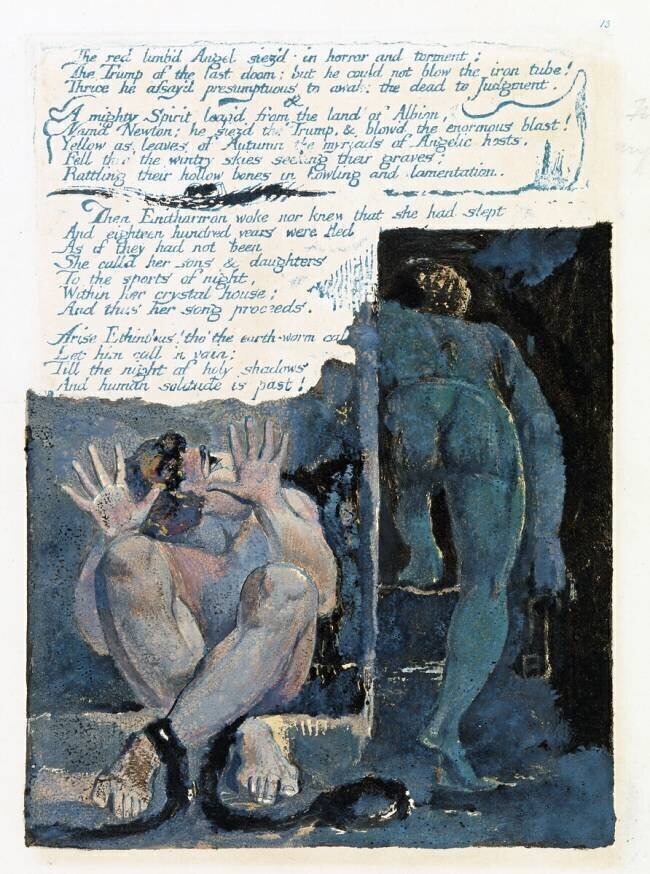 13
The red limb'd Angel siez'd in horror and torment;
The Trump of the last doom; but he could not blow the iron tube!
Thrice he assay'd presumptuous to awake the dead to Judgment.
A mighty Spirit leap'd from the land of Albion,
Nam'd Newton; he siez'd the Trump, & blow'd the enormous blast!
Yellow as leaves of Autumn the myriads of Angelic hosts,
Fell thro' the wintry skies seeking their graves;
Rattling their hollow bones in howling and lamentation.
Then Enitharmon woke nor knew that she had slept
And eighteen hundred years were fled
As if they had not been
She call'd her sons & daughters
To the sports of night,
Within her crystal house;
And thus her song proceeds.
Arise Ethinthus! tho' the earth-worm call
Let him call in vain;
Till the night of holy shadows
And human solitude is past!